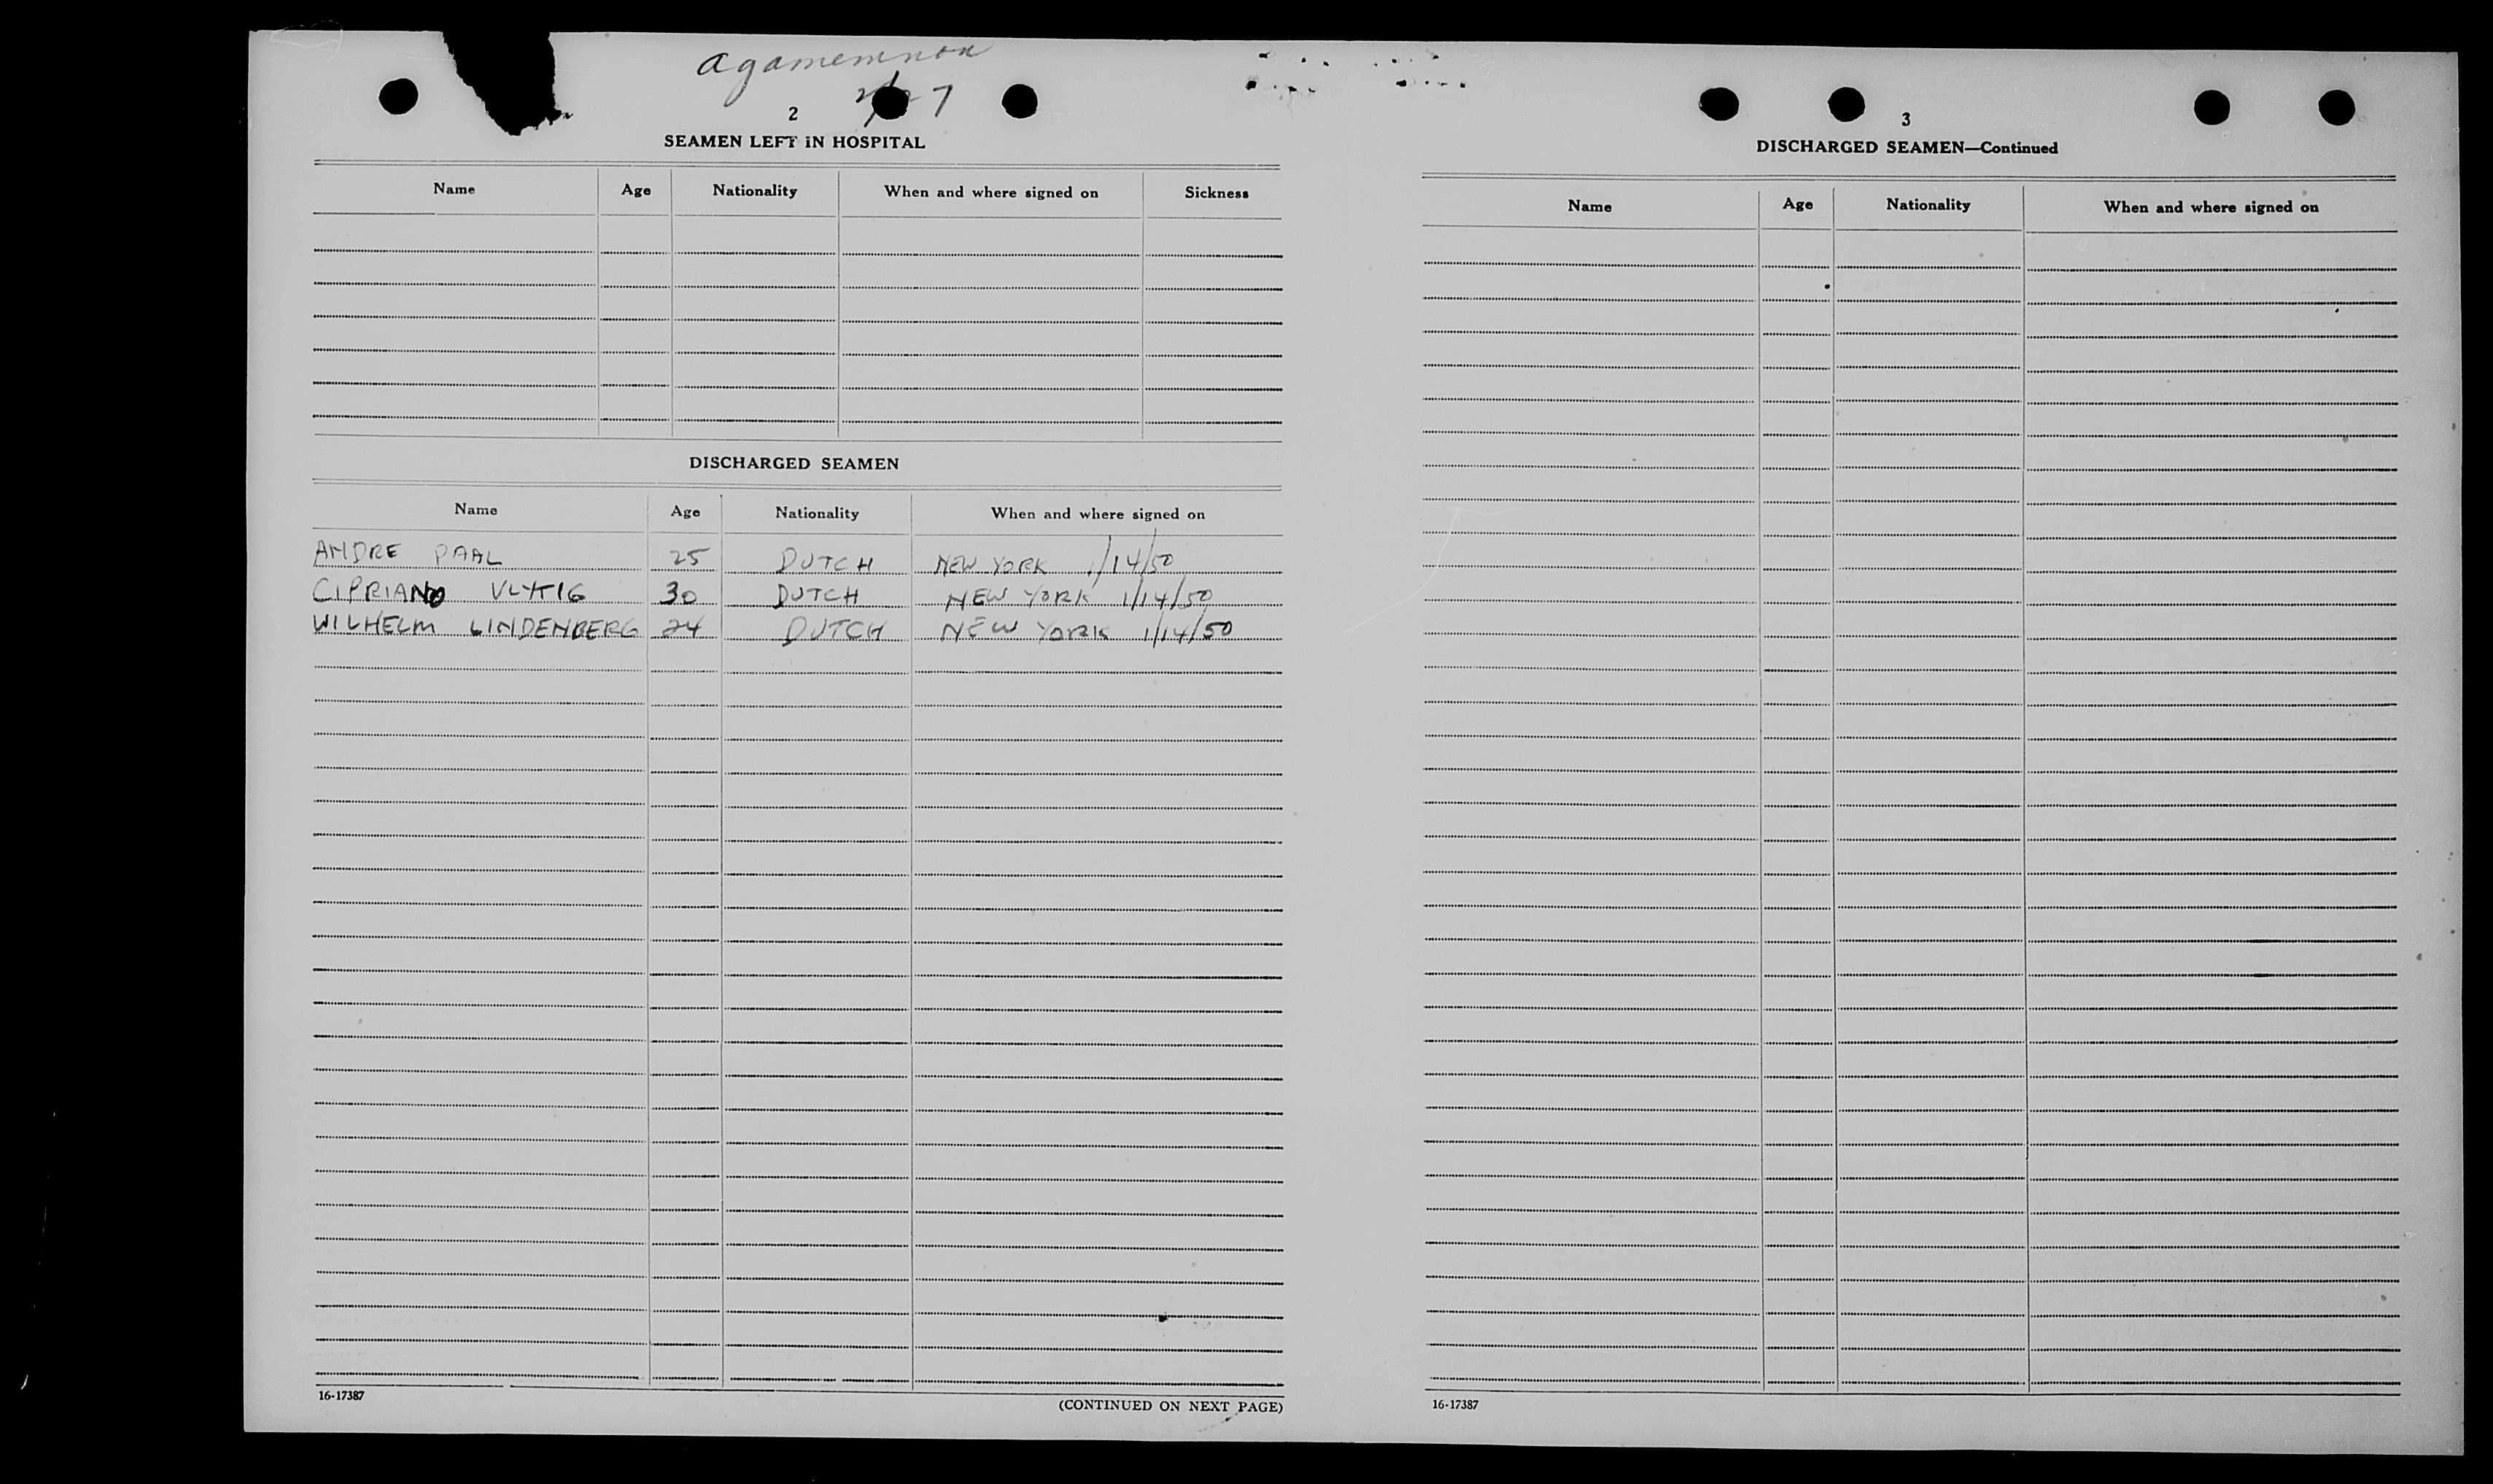 Agamemnon
2/27
2
SEAMEN LEFT IN HOSPITAL
Name Age Nationality When and where signed on Sickness
DISCHARGED SEAMEN
Name Age Nationality When and where signed on
ANDRE PAAL 25 DUTCH NEW YORK 1/14/50
CIPRIANO 30 DUTCH NEW YORK 1/14/50
WILHELM LINDENBERG 24 DUTCH NEW YORK 1/14/50
16-17387
(CONTINUED ON NEXT PAGE)
3
DISCHARGED SEAMEN—Continued
Name Age Nationality When and where signed on
16-17387